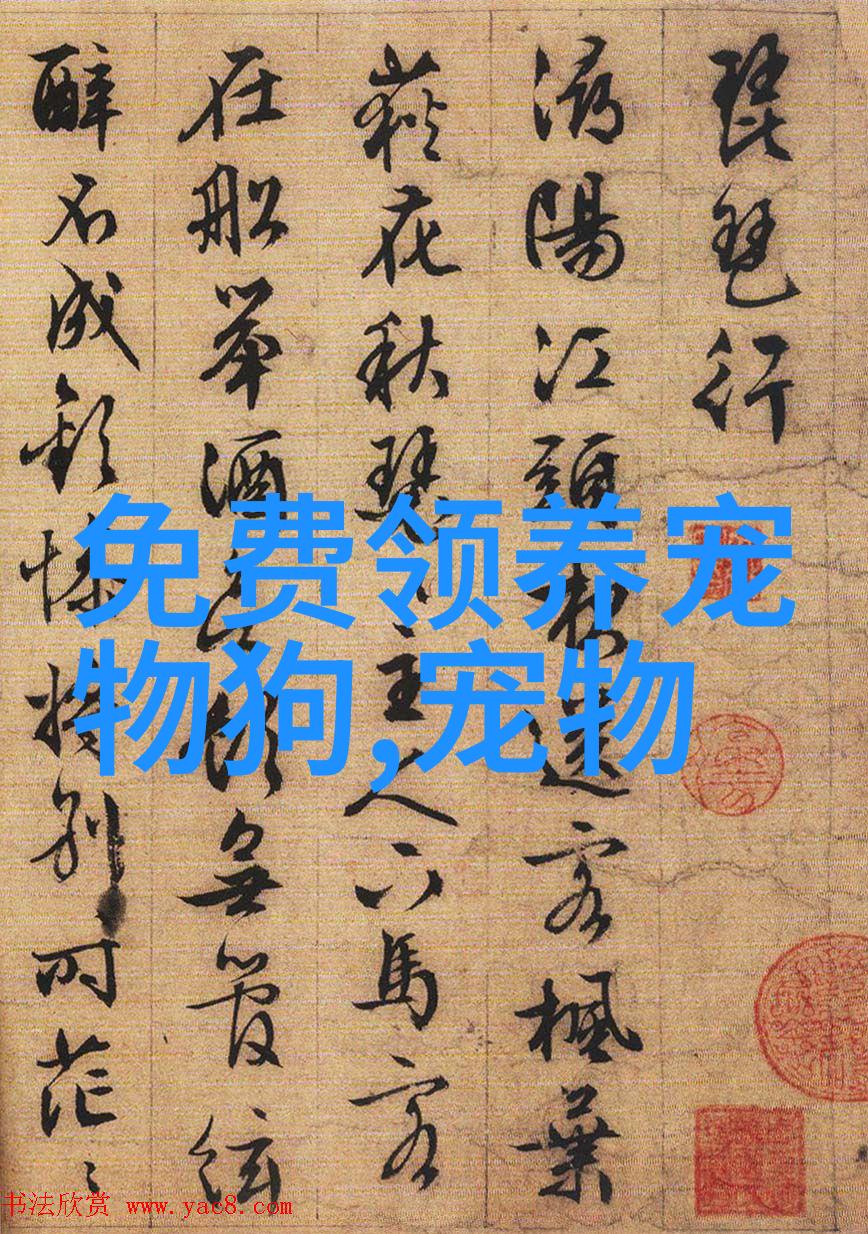 琵琶行
潯陽江頭夜送客楓葉
荻花秋瑟〻主人下馬客
在船舉酒欲飲無管絃
醉不成歡慘將別時茫〻
免费领养宠
物狗,宠物
书法欣赏 www.yac8.com